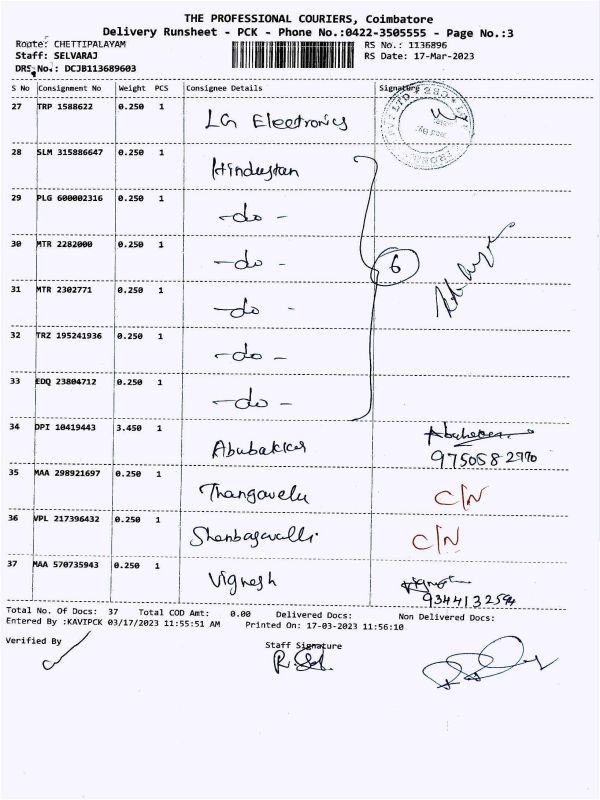 THE PROFESSIONAL COURIERS, Coimbatore
Delivery Runsheet - PCK - Phone No.:0422-3505555 - Page No.:3
Route: CHETTIPALAYAM RS No.: 1136896
Staff: SELVARAJ RS Date: 17-Mar-2023
DRS No.: DCJB113689603
S No Consignment No Weight PCS Consignee Details Signature
27 TRP 1588622 0.250 1 LG Electronics
28 SLM 315886647 0.250 1 Hindustan
29 PLG 600002316 0.250 1 -do-
30 MTR 2282000 0.250 1 -do- 6
31 MTR 2302771 0.250 1 -do-
32 TRZ 195241936 0.250 1 -do-
33 EDQ 23804712 0.250 1 -do-
34 DPI 10419443 3.450 1 Abubakker
35 MAA 298921697 0.250 1 Thangavelu C/N
36 VPL 217396432 0.250 1 Shenbagavalli C/N
37 MAA 570735943 0.250 1 Vignesh
Total No. Of Docs: 37 Total COD Amt: 0.00 Delivered Docs: Non Delivered Docs:
Entered By :KAVIPCK 03/17/2023 11:55:51 AM Printed On: 17-03-2023 11:56:10
Verified By Staff Signature